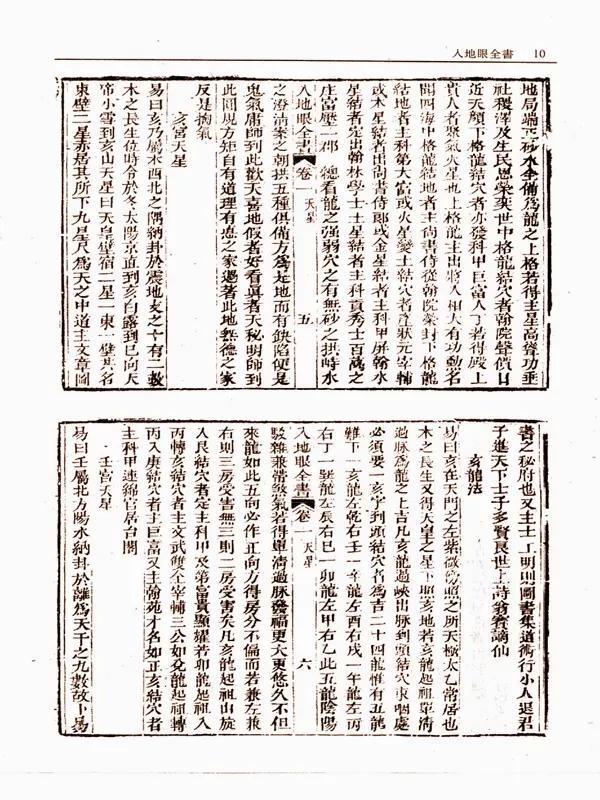 入地眼全書 10
地局端正砂水全備爲龍之上格若得主星高聳功垂
社稷澤及生民恩榮奕世中格龍結穴者翰院聲價日
近天顏下格龍結穴者亦發科甲巨富人丁若得殿上
貴人者聚氣火星也上格龍主出將入相大有功勳名
聞四海中格龍結地者主尚書侍從翰院榮封下格龍
結地者主科第大富或火星變土結穴者定主狀元宰輔
或木星結者出尚書侍郎或金星結者主科甲屏翰水
星結者定出翰林學士土星結者主科貢秀士百萬之
庄富壓一郡 總看龍之強弱穴之有無砂之拱峙水
入地眼全書 卷一 天星 五
之澄清案之朝拱五種俱備方爲足地而有缺陷便是
鬼氣庸師到此歡天喜地假者好看眞者天秘明師到
此同規方矩自有道理有德之家遇著此地無德之家
反是掬氣
亥宮天星
易曰亥乃屬木西北之隅納卦於震地支之十有二數
木之長生位時令於冬太陽京直到亥白露到巳向天
帝小雪到亥山天皇壁宿二星一東一壁其名
東壁二星赤居其所下九星尺爲天之中道主文章圖
書之秘府也又主士工明則圖書集道術行小人退君
子進天下士子多賢良世上詩翁賓謫仙
亥龍法
易曰亥在天門之左紫微勢照之所天極太乙常居也
木之長生又得天皇之星下照亥地若亥龍起祖單清
過脉爲龍之上吉凡亥龍過峽出脉到頭結穴束咽處
必須要一亥字到頭結穴者爲吉二十四龍惟有五龍
難下一亥龍左乾右壬一辛龍左酉右戌一午龍左丙
右丁一巽龍左辰右巳一卯龍左甲右乙此五龍陰陽
入地眼全書 卷一 天星 六
駁雜兼帶煞氣若得單清過脉發福更大更悠久不但
來龍如此五向必作正向方得房分不偏而若兼左兼
右則三房受害無三則二房受害矣凡亥龍起祖出旋
人艮結穴者定主科甲及第富貴顯耀若卯龍起祖入
丙轉亥結穴者主文武雙全宰輔三公如兌龍起祖轉
丙入庚結穴者主巨富又主翰苑才名如正亥結穴者
主科甲連綿官居台閣
壬宮天星
易曰壬屬北方陽水納卦於離爲天干之九數故卜爲